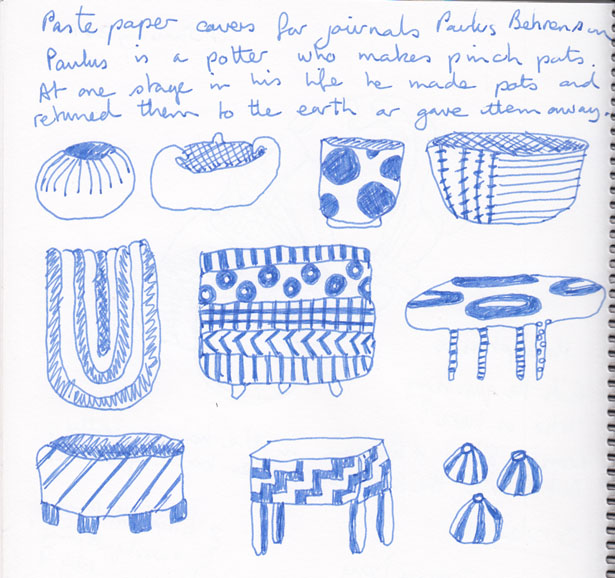 Paste paper covers for journals Paulus Behrenson
Paulus is a potter who makes pinch pots.
At one stage in his life he made pots and
returned them to the earth or gave them away.